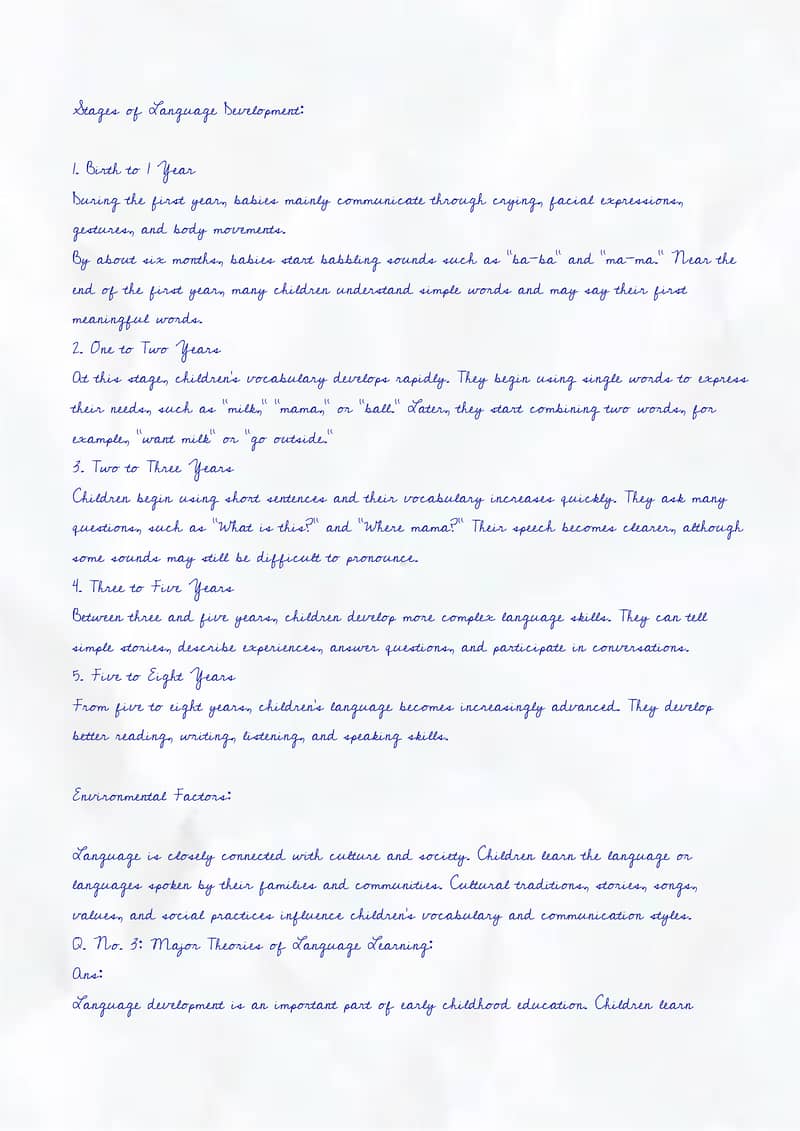 Stages of Language Development:
1. Birth to 1 Year
During the first year, babies mainly communicate through crying, facial expressions,
gestures, and body movements.
By about six months, babies start babbling sounds such as "ba-ba" and "ma-ma." Near the
end of the first year, many children understand simple words and may say their first
meaningful words.
2. One to Two Years
At this stage, children's vocabulary develops rapidly. They begin using single words to express
their needs, such as "milk," "mama," or "ball." Later, they start combining two words, for
example, "want milk" or "go outside."
3. Two to Three Years
Children begin using short sentences and their vocabulary increases quickly. They ask many
questions, such as "What is this?" and "Where mama?" Their speech becomes clearer, although
some sounds may still be difficult to pronounce.
4. Three to Five Years
Between three and five years, children develop more complex language skills. They can tell
simple stories, describe experiences, answer questions, and participate in conversations.
5. Five to Eight Years
From five to eight years, children's language becomes increasingly advanced. They develop
better reading, writing, listening, and speaking skills.
Environmental Factors:
Language is closely connected with culture and society. Children learn the language or
languages spoken by their families and communities. Cultural traditions, stories, songs,
values, and social practices influence children's vocabulary and communication styles.
Q. No. 3: Major Theories of Language Learning:
Ans:
Language development is an important part of early childhood education. Children learn